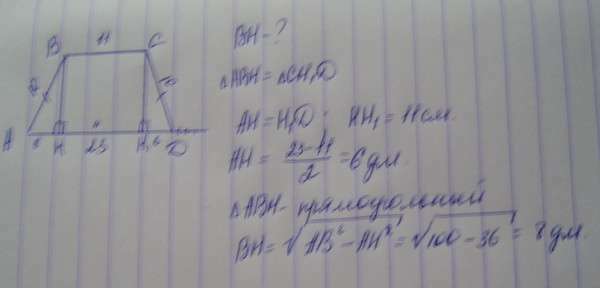 B 11 C
10 10
11
A 6 H 23 H₁ 6 D
BH - ?
△ABH = △CH₁D
AH = H₁D. HH₁ = 11 см.
AH = (23-11)/2 = 6 дм.
△ABH - прямоугольный
BH = √AB² - AH² = √100 - 36 = 8 дм.